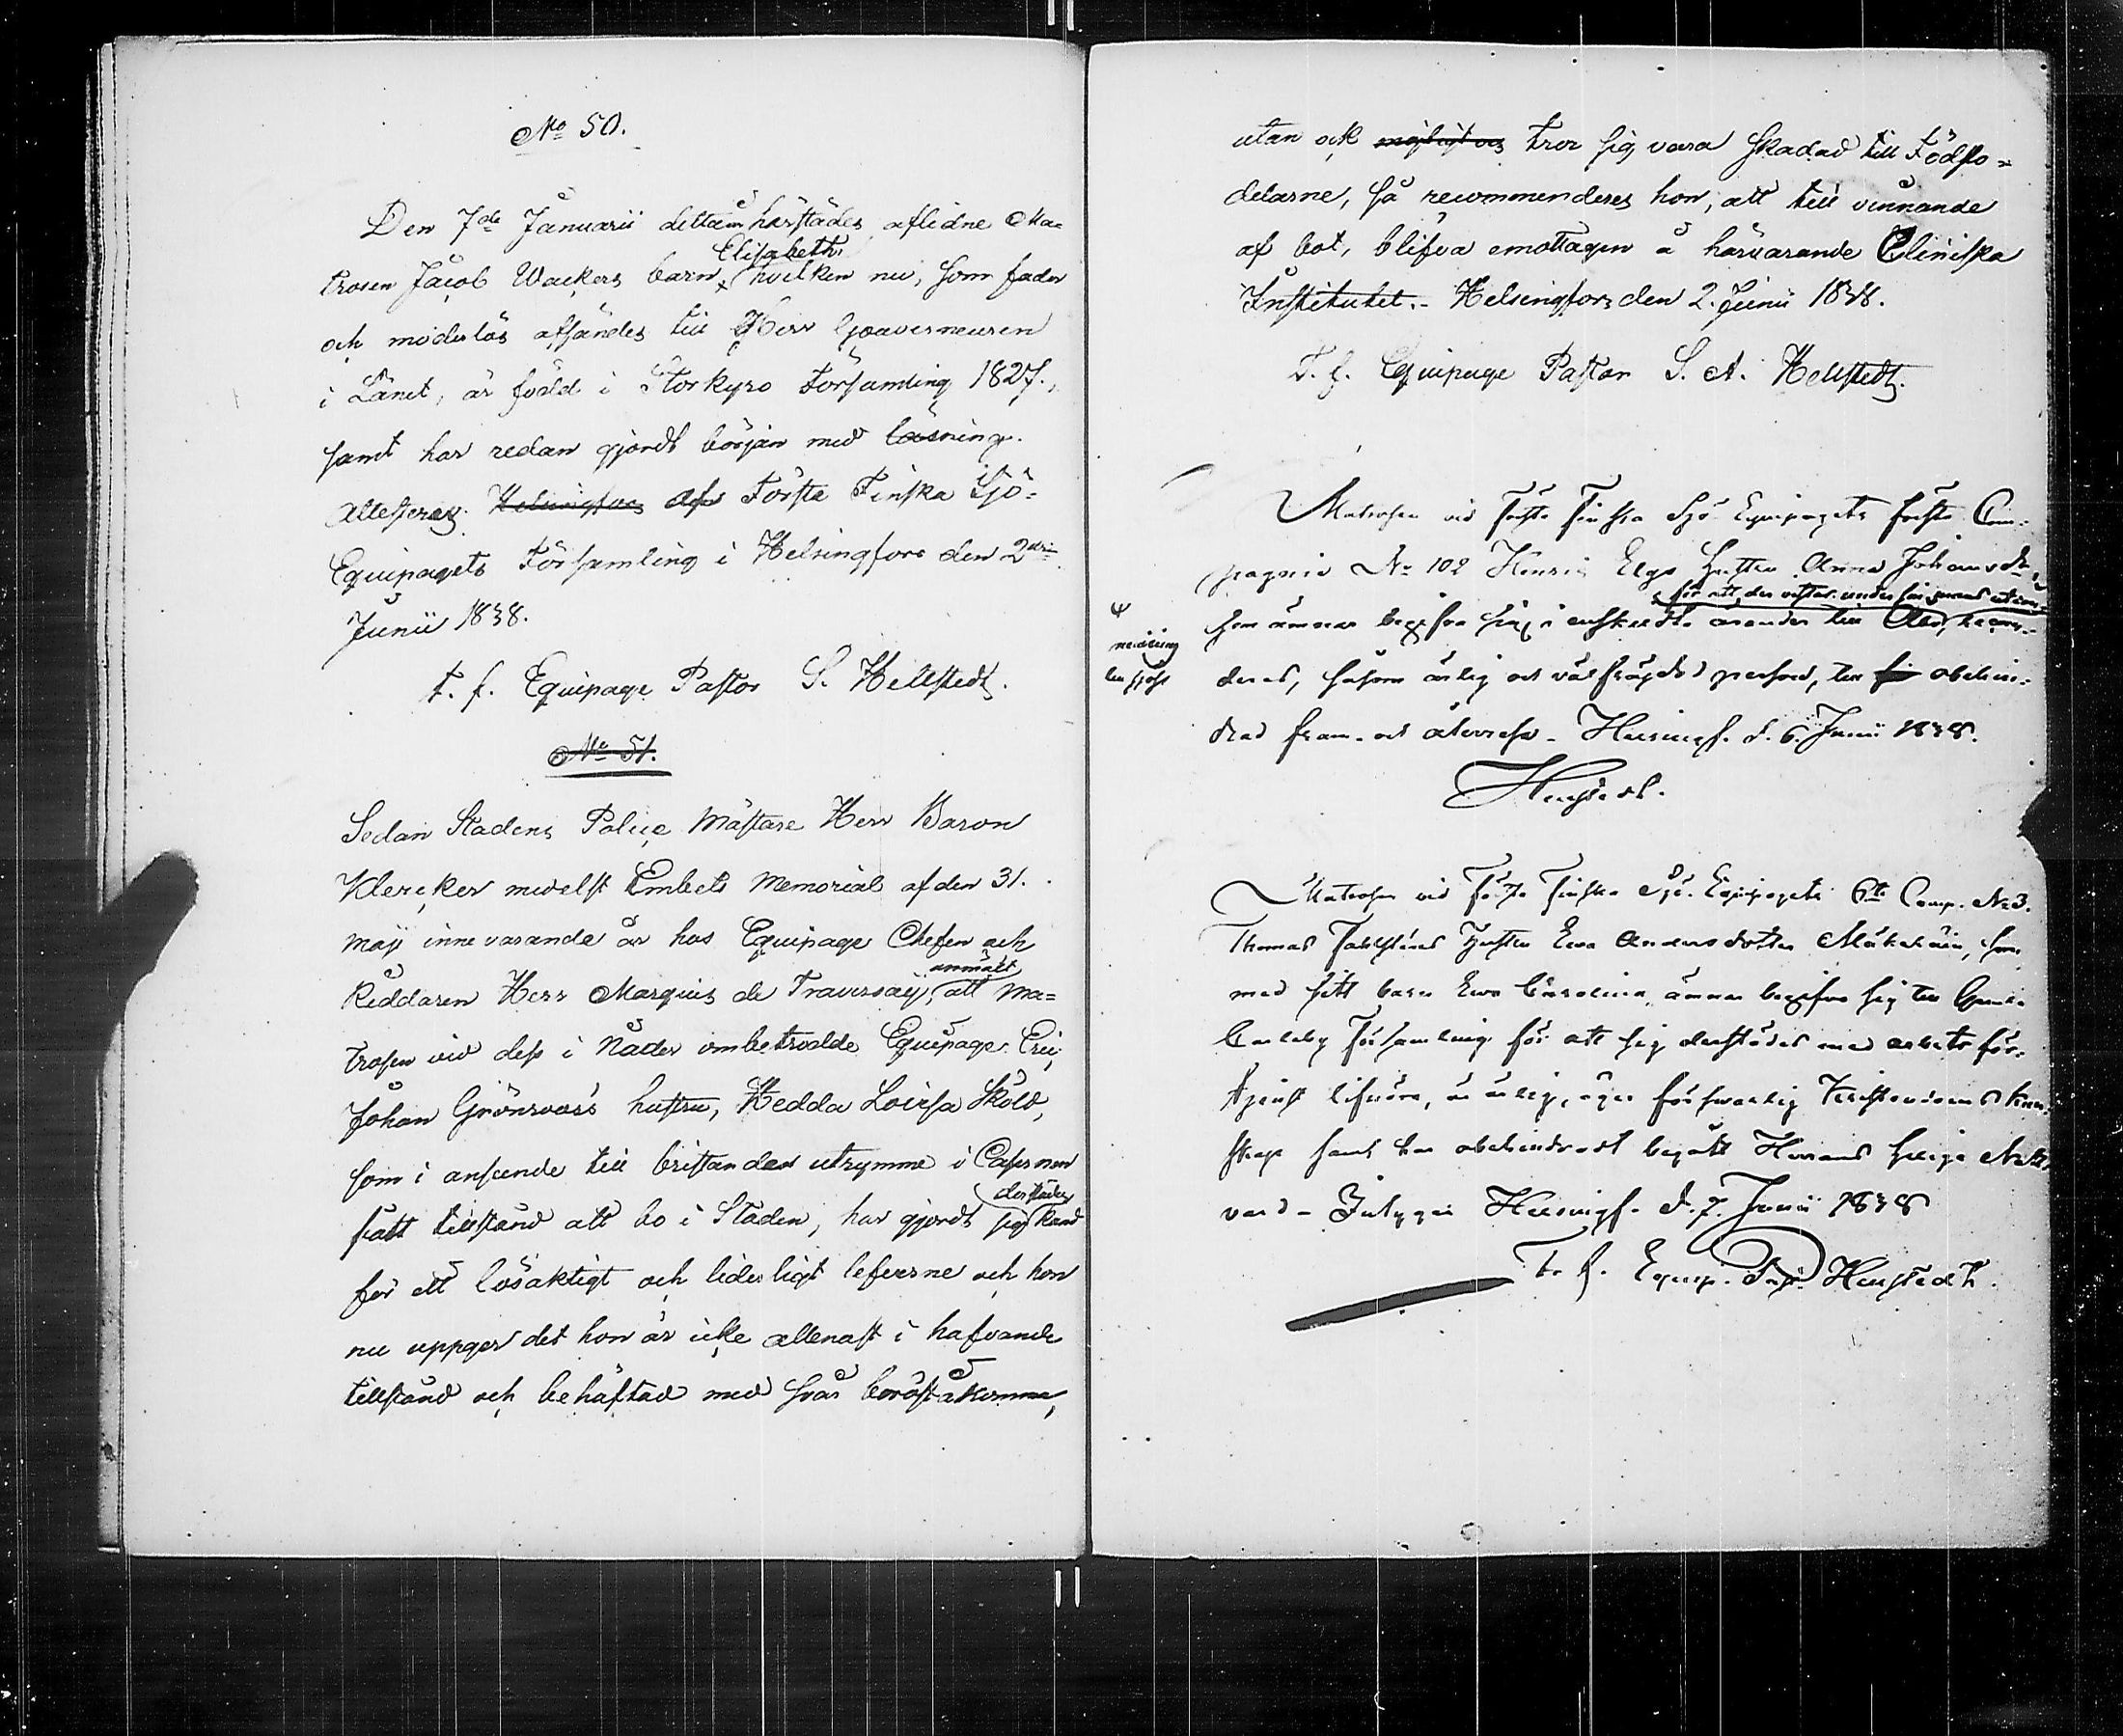 No 50.
Den 7de Januarii detta år härstädes aflidne Ma-
Elisabeth
trosen Jacob Wackers barn, hvilken nu, som fader
och moderlös afsändes till Herr Gouverneuren
i Länet, är född i Storkyro Församling 1827.,
samt har redan gjordt början med läsning.
Attesteras. Helsingfors af Första Finska Sjö-
Equipagets Församling i Helsingfors den 2dre
Junii 1838.
t. f. Equipage Pastor S. Hellstedt.
No 51.
Sedan Stadens Police Mästare Herr Baron
Klercker medelst Embets Memorial af den 31.
Maji innevarande år hos Equipage Chefen och
anmält
Riddaren Herr Marquis de Traversay, att Ma-
trosen vid dess i Nåder ombetrodde Equipage Eric
Johan Grönroos's hustru, Hedda Lovisa Sköld,
som i anseende till bristande utrymme i Casernen
derstädes
fått tillstånd att bo i Staden, har gjordt sig känd
för ett lösaktigt och liderligt lefverne och hon
nu uppger det hon är icke allenast i hafvande
tillstånd och behäftad med svår bröståkomma,
utan ock möjligtvis tror sig vara skadad till Födslo-
delarne, så recommenderes hon, att till vinnande
af bot, blifva emottagen å härvarande Cliniska
Institutet. - Helsingfors den 2. Junii 1838.
T. f. Equipage Pastor S. A. Hellstedt.
Matrosen vid Första Finska Sjö Equipagets första Com-
pagnie No 102 Henric Elgs Hustru Anna Johansdr
för att der vistas under sin mans
som ämnar begifva sig i enskildta ärender till Åbo, recomen-
deras, såsom ärlig och välfräjdad person, till obehin-
drad fram- och återresa - Helsingf. d. 6. Junii 1838.
Hellstedt.
Matrosen vid Första Finska Sjö-Equipagets 6te Comp. No 3.
Thomas Hustru Eva Andersdotter Mäkeläin, som
med sitt barn Eva Carolina, ämnar begifva sig till Gamla
Carleby Församling för att sig derstädes med arbete för-
tjenst lifnära, är ärlig, äger försvarlig Christendoms kun-
skap samt har obehindradt begått Herrans heliga Natt-
vard - Intygar Helsingf. d. 7. Junii 1838
t. f. Equip. Past. Hellstedt.